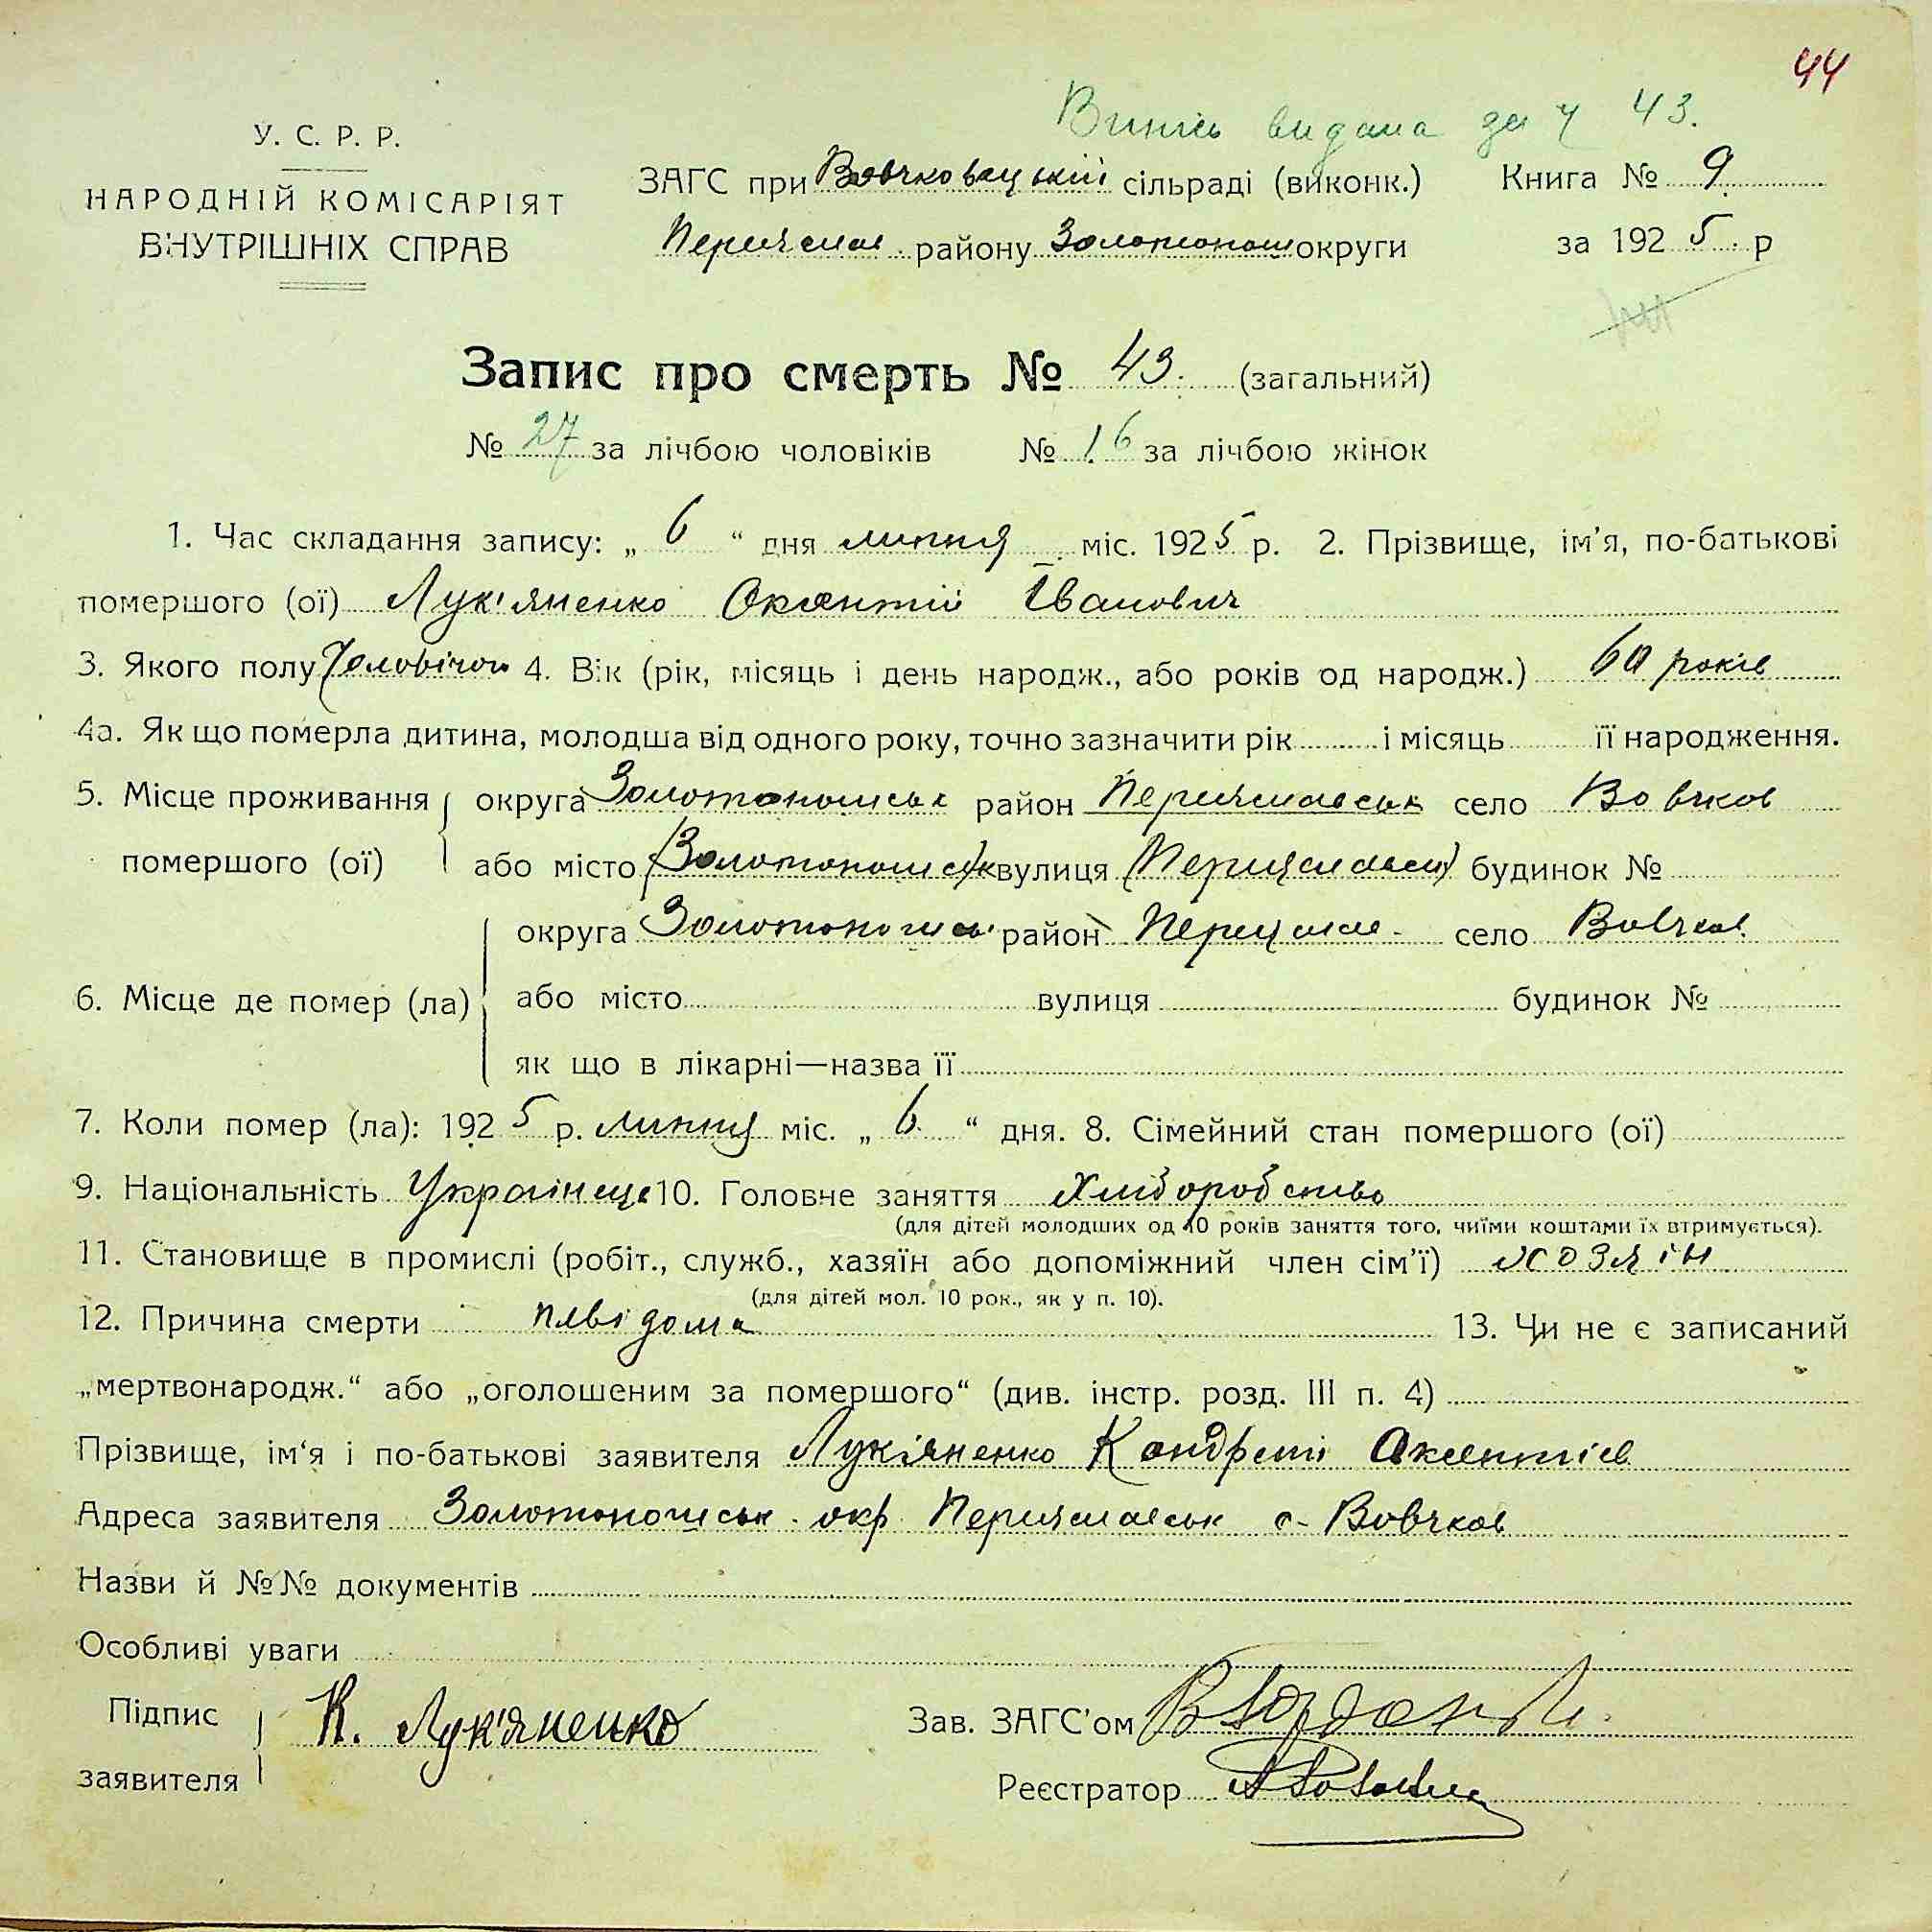 44
Випись видана за ч 43.
У. С. Р. Р.
НАРОДНІЙ КОМІСАРІЯТ
ВНУТРІШНІХ СПРАВ
ЗАГС при Вовчковецькій сільраді (виконк.) Книга № 9.
Переяслав. району Золотонош округи за 1925. р
Запис про смерть № 43. (загальний)
№ 27 за лічбою чоловіків № 16 за лічбою жінок
1. Час складання запису: „ 6 “ дня липня міс. 1925 р. 2. Прізвище, ім'я, по-батькові
помершого (ої) Лук'яненко Оксентій Іванович
3. Якого полу Чоловічого 4. Вік (рік, місяць і день народж., або років од народж.) 60 років
4а. Як що померла дитина, молодша від одного року, точно зазначити рік і місяць її народження.
5. Місце проживання округа Золотоноськ район Переяславськ село Вовчков
помершого (ої) або місто (Золотоноськ) вулиця (Переяславськ) будинок №
округа Золотонось район Переяслав. село Вовчков.
6. Місце де помер (ла) або місто вулиця будинок №
як що в лікарні—назва її
7. Коли помер (ла): 1925 р. липня міс. „ 6. “ дня. 8. Сімейний стан помершого (ої)
9. Національність Українець 10. Головне заняття Хліборобство
(для дітей молодших од 10 років заняття того, чиїми коштами їх втримується).
11. Становище в промислі (робіт., служб., хазяїн або допоміжний член сім'ї) хозяїн
(для дітей мол. 10 рок., як у п. 10).
12. Причина смерти невідома 13. Чи не є записаний
„мертвонародж.“ або „оголошеним за помершого“ (див. інстр. розд. III п. 4)
Прізвище, ім'я і по-батькові заявителя Лукіяненко Кондрат Оксентієв
Адреса заявителя Золотоноськ. окр. Переяславськ с- Вовчков
Назви й №№ документів
Особливі уваги
Підпис
заявителя К. Лук'яненко
Зав. ЗАГС'ом
Реєстратор